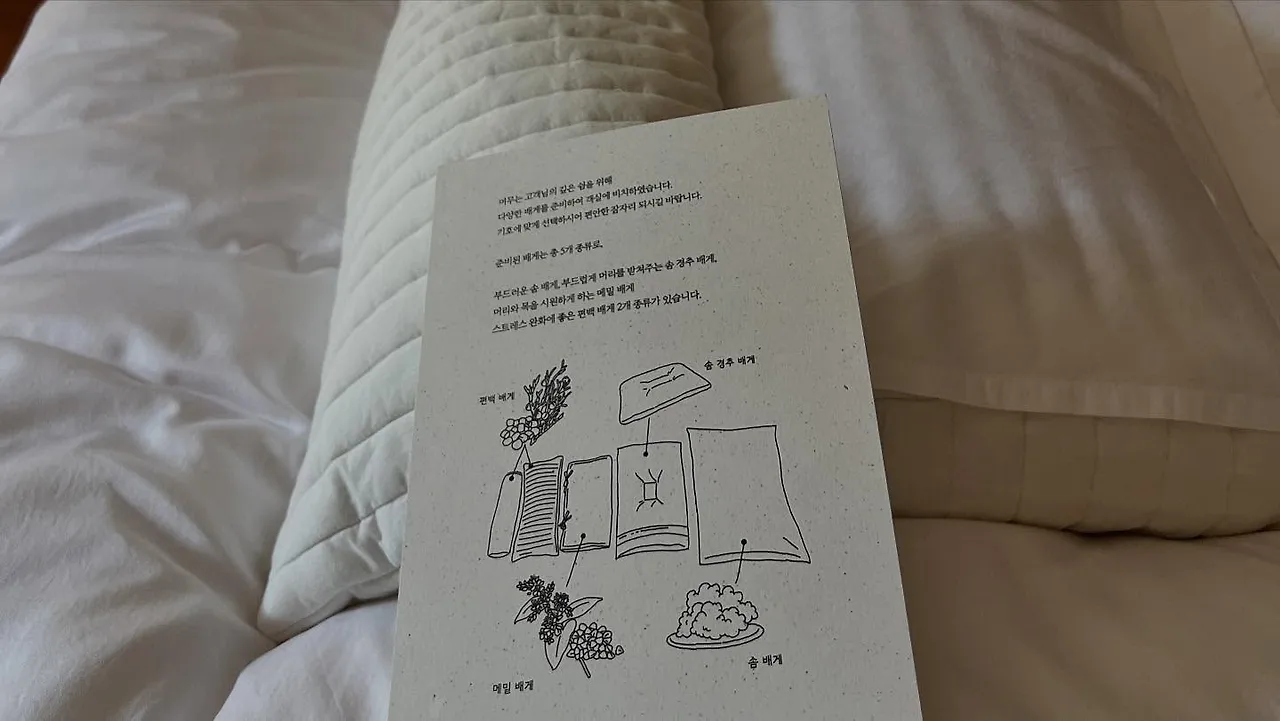 머무는 고객님의 깊은 쉼을 위해
다양한 배게를 준비하여 객실에 비치하였습니다.
기호에 맞게 선택하시어 편안한 잠자리 되시길 바랍니다.
준비된 배게는 총 5개 종류로,
부드러운 솜 배게, 부드럽게 머리를 받쳐주는 솜 경추 배게,
머리와 목을 시원하게 하는 메밀 배게
스트레스 완화에 좋은 편백 배게 2개 종류가 있습니다.
솜 경추 배게
편백 배게
솜 배게
메밀 배게